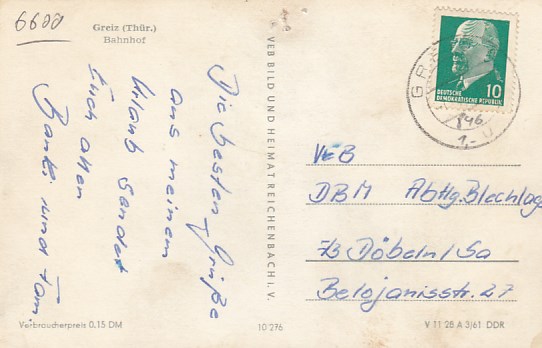 6600
Greiz (Thür.)
Bahnhof
Die besten Grüße
aus meinem
Urlaub sendet
Euch allen
und Fam.
VEB BILD UND HEIMAT REICHENBACH I. V.
10
DEUTSCHE
DEMOKRATISCHE REPUBLIK
GR
VEB
DBM Abtlg. Blechlag
73 Döbeln / Sa
Belojanisstr. 27
Verbraucherpreis 0.15 DM
10 276
V 11 28 A 3/61 DDR